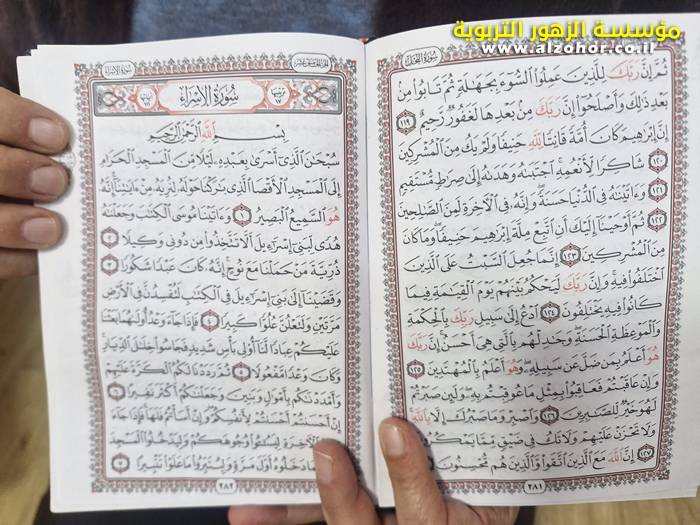 مؤسسة الزهور التربوية
www.alzohor.co.il
سُورَةُ النَّحْلِ
ثُمَّ إِنَّ رَبَّكَ لِلَّذِينَ عَمِلُوا۟ ٱلسُّوٓءَ بِجَهَـٰلَةٍ ثُمَّ تَابُوا۟ مِنۢ
بَعْدِ ذَٰلِكَ وَأَصْلَحُوٓا۟ إِنَّ رَبَّكَ مِنۢ بَعْدِهَا لَغَفُورٌ رَّحِيمٌ ١١٩
إِنَّ إِبْرَٰهِيمَ كَانَ أُمَّةً قَانِتًا لِّلَّهِ حَنِيفًا وَلَمْ يَكُ مِنَ ٱلْمُشْرِكِينَ
١٢٠ شَاكِرًا لِّأَنْعُمِهِ ٱجْتَبَىٰهُ وَهَدَىٰهُ إِلَىٰ صِرَٰطٍ مُّسْتَقِيمٍ
١٢١ وَءَاتَيْنَـٰهُ فِى ٱلدُّنْيَا حَسَنَةً وَإِنَّهُۥ فِى ٱلْـَٔاخِرَةِ لَمِنَ ٱلصَّـٰلِحِينَ
١٢٢ ثُمَّ أَوْحَيْنَآ إِلَيْكَ أَنِ ٱتَّبِعْ مِلَّةَ إِبْرَٰهِيمَ حَنِيفًا وَمَا كَانَ
مِنَ ٱلْمُشْرِكِينَ ١٢٣ إِنَّمَا جُعِلَ ٱلسَّبْتُ عَلَى ٱلَّذِينَ
ٱخْتَلَفُوا۟ فِيهِ وَإِنَّ رَبَّكَ لَيَحْكُمُ بَيْنَهُمْ يَوْمَ ٱلْقِيَـٰمَةِ فِيمَا
كَانُوا۟ فِيهِ يَخْتَلِفُونَ ١٢٤ ٱدْعُ إِلَىٰ سَبِيلِ رَبِّكَ بِٱلْحِكْمَةِ
وَٱلْمَوْعِظَةِ ٱلْحَسَنَةِ وَجَـٰدِلْهُم بِٱلَّتِى هِىَ أَحْسَنُ إِنَّ رَبَّكَ
هُوَ أَعْلَمُ بِمَن ضَلَّ عَن سَبِيلِهِۦ وَهُوَ أَعْلَمُ بِٱلْمُهْتَدِينَ ١٢٥
وَإِنْ عَاقَبْتُمْ فَعَاقِبُوا۟ بِمِثْلِ مَا عُوقِبْتُم بِهِۦ وَلَئِن صَبَرْتُمْ
لَهُوَ خَيْرٌ لِّلصَّـٰبِرِينَ ١٢٦ وَٱصْبِرْ وَمَا صَبْرُكَ إِلَّا بِٱللَّهِ
وَلَا تَحْزَنْ عَلَيْهِمْ وَلَا تَكُ فِى ضَيْقٍ مِّمَّا يَمْكُرُونَ
١٢٧ إِنَّ ٱللَّهَ مَعَ ٱلَّذِينَ ٱتَّقَوا۟ وَّٱلَّذِينَ هُم مُّحْسِنُونَ
٢٨١
سُورَةُ الإِسْرَاءِ
سُورَةُ الإِسْرَاءِ
بِسْمِ ٱللَّهِ ٱلرَّحْمَـٰنِ ٱلرَّحِيمِ
سُبْحَـٰنَ ٱلَّذِىٓ أَسْرَىٰ بِعَبْدِهِۦ لَيْلًا مِّنَ ٱلْمَسْجِدِ ٱلْحَرَامِ
إِلَى ٱلْمَسْجِدِ ٱلْأَقْصَا ٱلَّذِى بَـٰرَكْنَا حَوْلَهُۥ لِنُرِيَهُۥ مِنْ ءَايَـٰتِنَآ إِنَّهُۥ
هُوَ ٱلسَّمِيعُ ٱلْبَصِيرُ ١ وَءَاتَيْنَا مُوسَى ٱلْكِتَـٰبَ وَجَعَلْنَـٰهُ
هُدًى لِّبَنِىٓ إِسْرَٰٓءِيلَ أَلَّا تَتَّخِذُوا۟ مِن دُونِى وَكِيلًا ٢
ذُرِّيَّةَ مَنْ حَمَلْنَا مَعَ نُوحٍ إِنَّهُۥ كَانَ عَبْدًا شَكُورًا ٣
وَقَضَيْنَآ إِلَىٰ بَنِىٓ إِسْرَٰٓءِيلَ فِى ٱلْكِتَـٰبِ لَتُفْسِدُنَّ فِى ٱلْأَرْضِ
مَرَّتَيْنِ وَلَتَعْلُنَّ عُلُوًّا كَبِيرًا ٤ فَإِذَا جَآءَ وَعْدُ أُولَىٰهُمَا بَعَثْنَا
عَلَيْكُمْ عِبَادًا لَّنَآ أُو۟لِى بَأْسٍ شَدِيدٍ فَجَاسُوا۟ خِلَـٰلَ ٱلدِّيَارِ
وَكَانَ وَعْدًا مَّفْعُولًا ٥ ثُمَّ رَدَدْنَا لَكُمُ ٱلْكَرَّةَ عَلَيْهِمْ
وَأَمْدَدْنَـٰكُم بِأَمْوَٰلٍ وَبَنِينَ وَجَعَلْنَـٰكُمْ أَكْثَرَ نَفِيرًا ٦
إِنْ أَحْسَنتُمْ أَحْسَنتُمْ لِأَنفُسِكُمْ وَإِنْ أَسَأْتُمْ فَلَهَا فَإِذَا جَآءَ
ٱلْـَٔاخِرَةِ لِيَسُـۥٓـُٔوا۟ وُجُوهَكُمْ وَلِيَدْخُلُوا۟ ٱلْمَسْجِدَ
دَخَلُوهُ أَوَّلَ مَرَّةٍ وَلِيُتَبِّرُوا۟ مَا عَلَوْا۟ تَتْبِيرًا ٧
٢٨٢